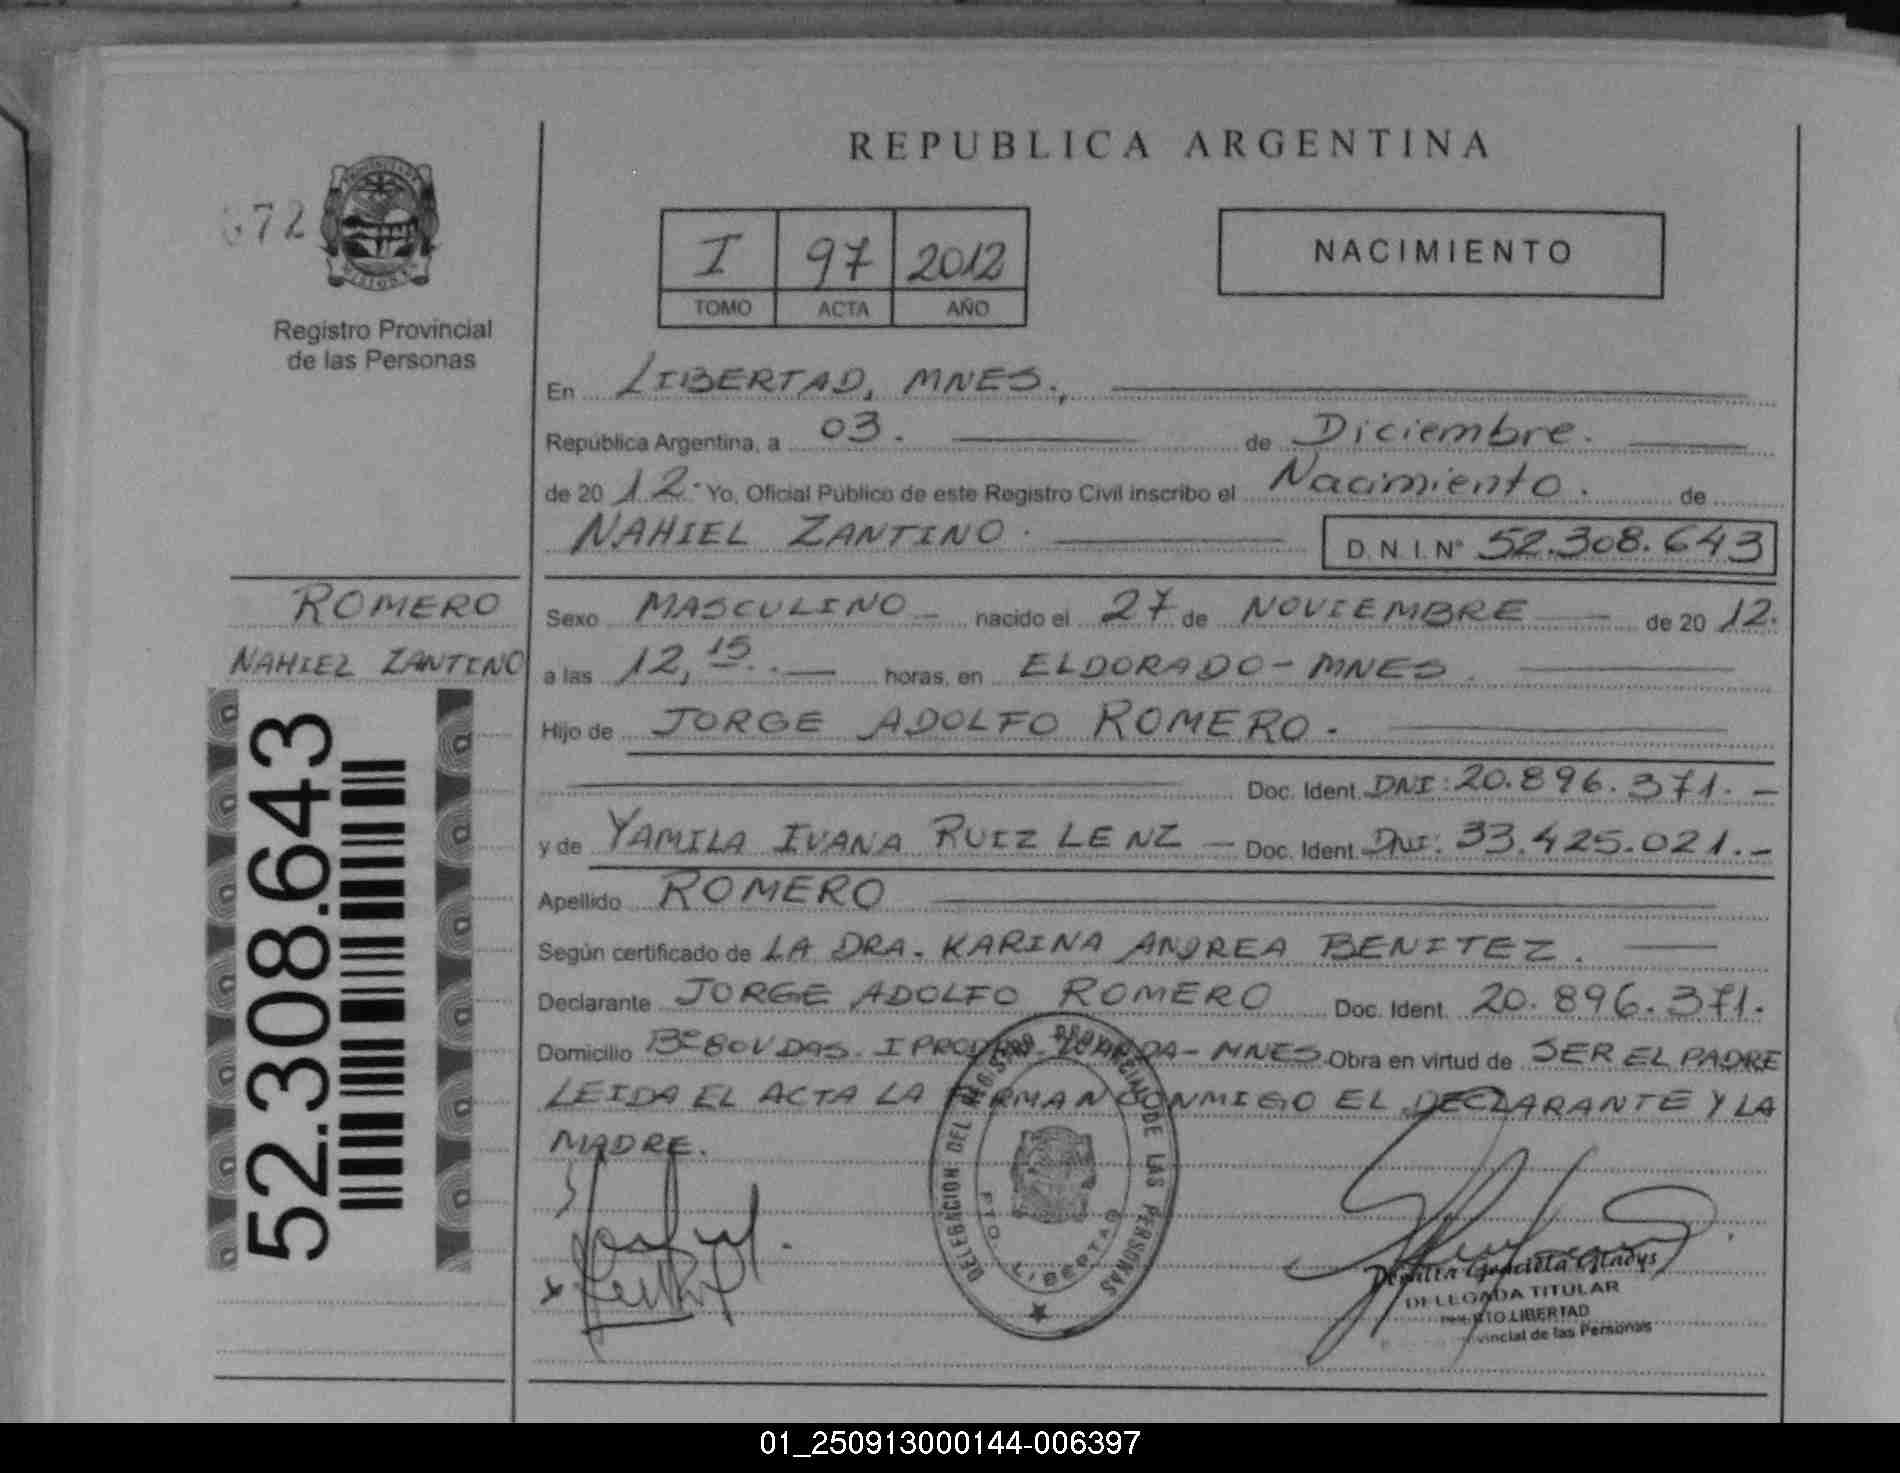 REPUBLICA ARGENTINA
672
Registro Provincial
de las Personas
I 97 2012
TOMO ACTA AÑO
NACIMIENTO
En LIBERTAD, MNES.,
República Argentina, a 03. de Diciembre.
de 20 12. Yo, Oficial Público de este Registro Civil inscribo el Nacimiento. de
NAHIEL ZANTINO. D.N.I. Nº 52.308.643
ROMERO
NAHIEL ZANTINO
52.308.643
Sexo MASCULINO - nacido el 27 de NOVIEMBRE — de 20 12.
a las 12,15. — horas, en ELDORADO - MNES.
Hijo de JORGE ADOLFO ROMERO.
Doc. Ident. DNI: 20.896.371. -
y de YAMILA IVANA RUIZ LENZ — Doc. Ident. DNI: 33.425.021. -
Apellido ROMERO
Según certificado de LA DRA. KARINA ANDREA BENITEZ.
Declarante JORGE ADOLFO ROMERO Doc. Ident. 20.896.371.
Domicilio Bº 80 VDAS. - MNES. Obra en virtud de SER EL PADRE
LEIDA EL ACTA LA FIRMAN CONMIGO EL DECLARANTE Y LA
MADRE.
DELEGACION DEL REGISTRO PROVINCIAL DE LAS PERSONAS
PTO. LIBERTAD
Graciela Gladys
DELEGADA TITULAR
LIBERTAD
Provincial de las Personas
01_250913000144-006397